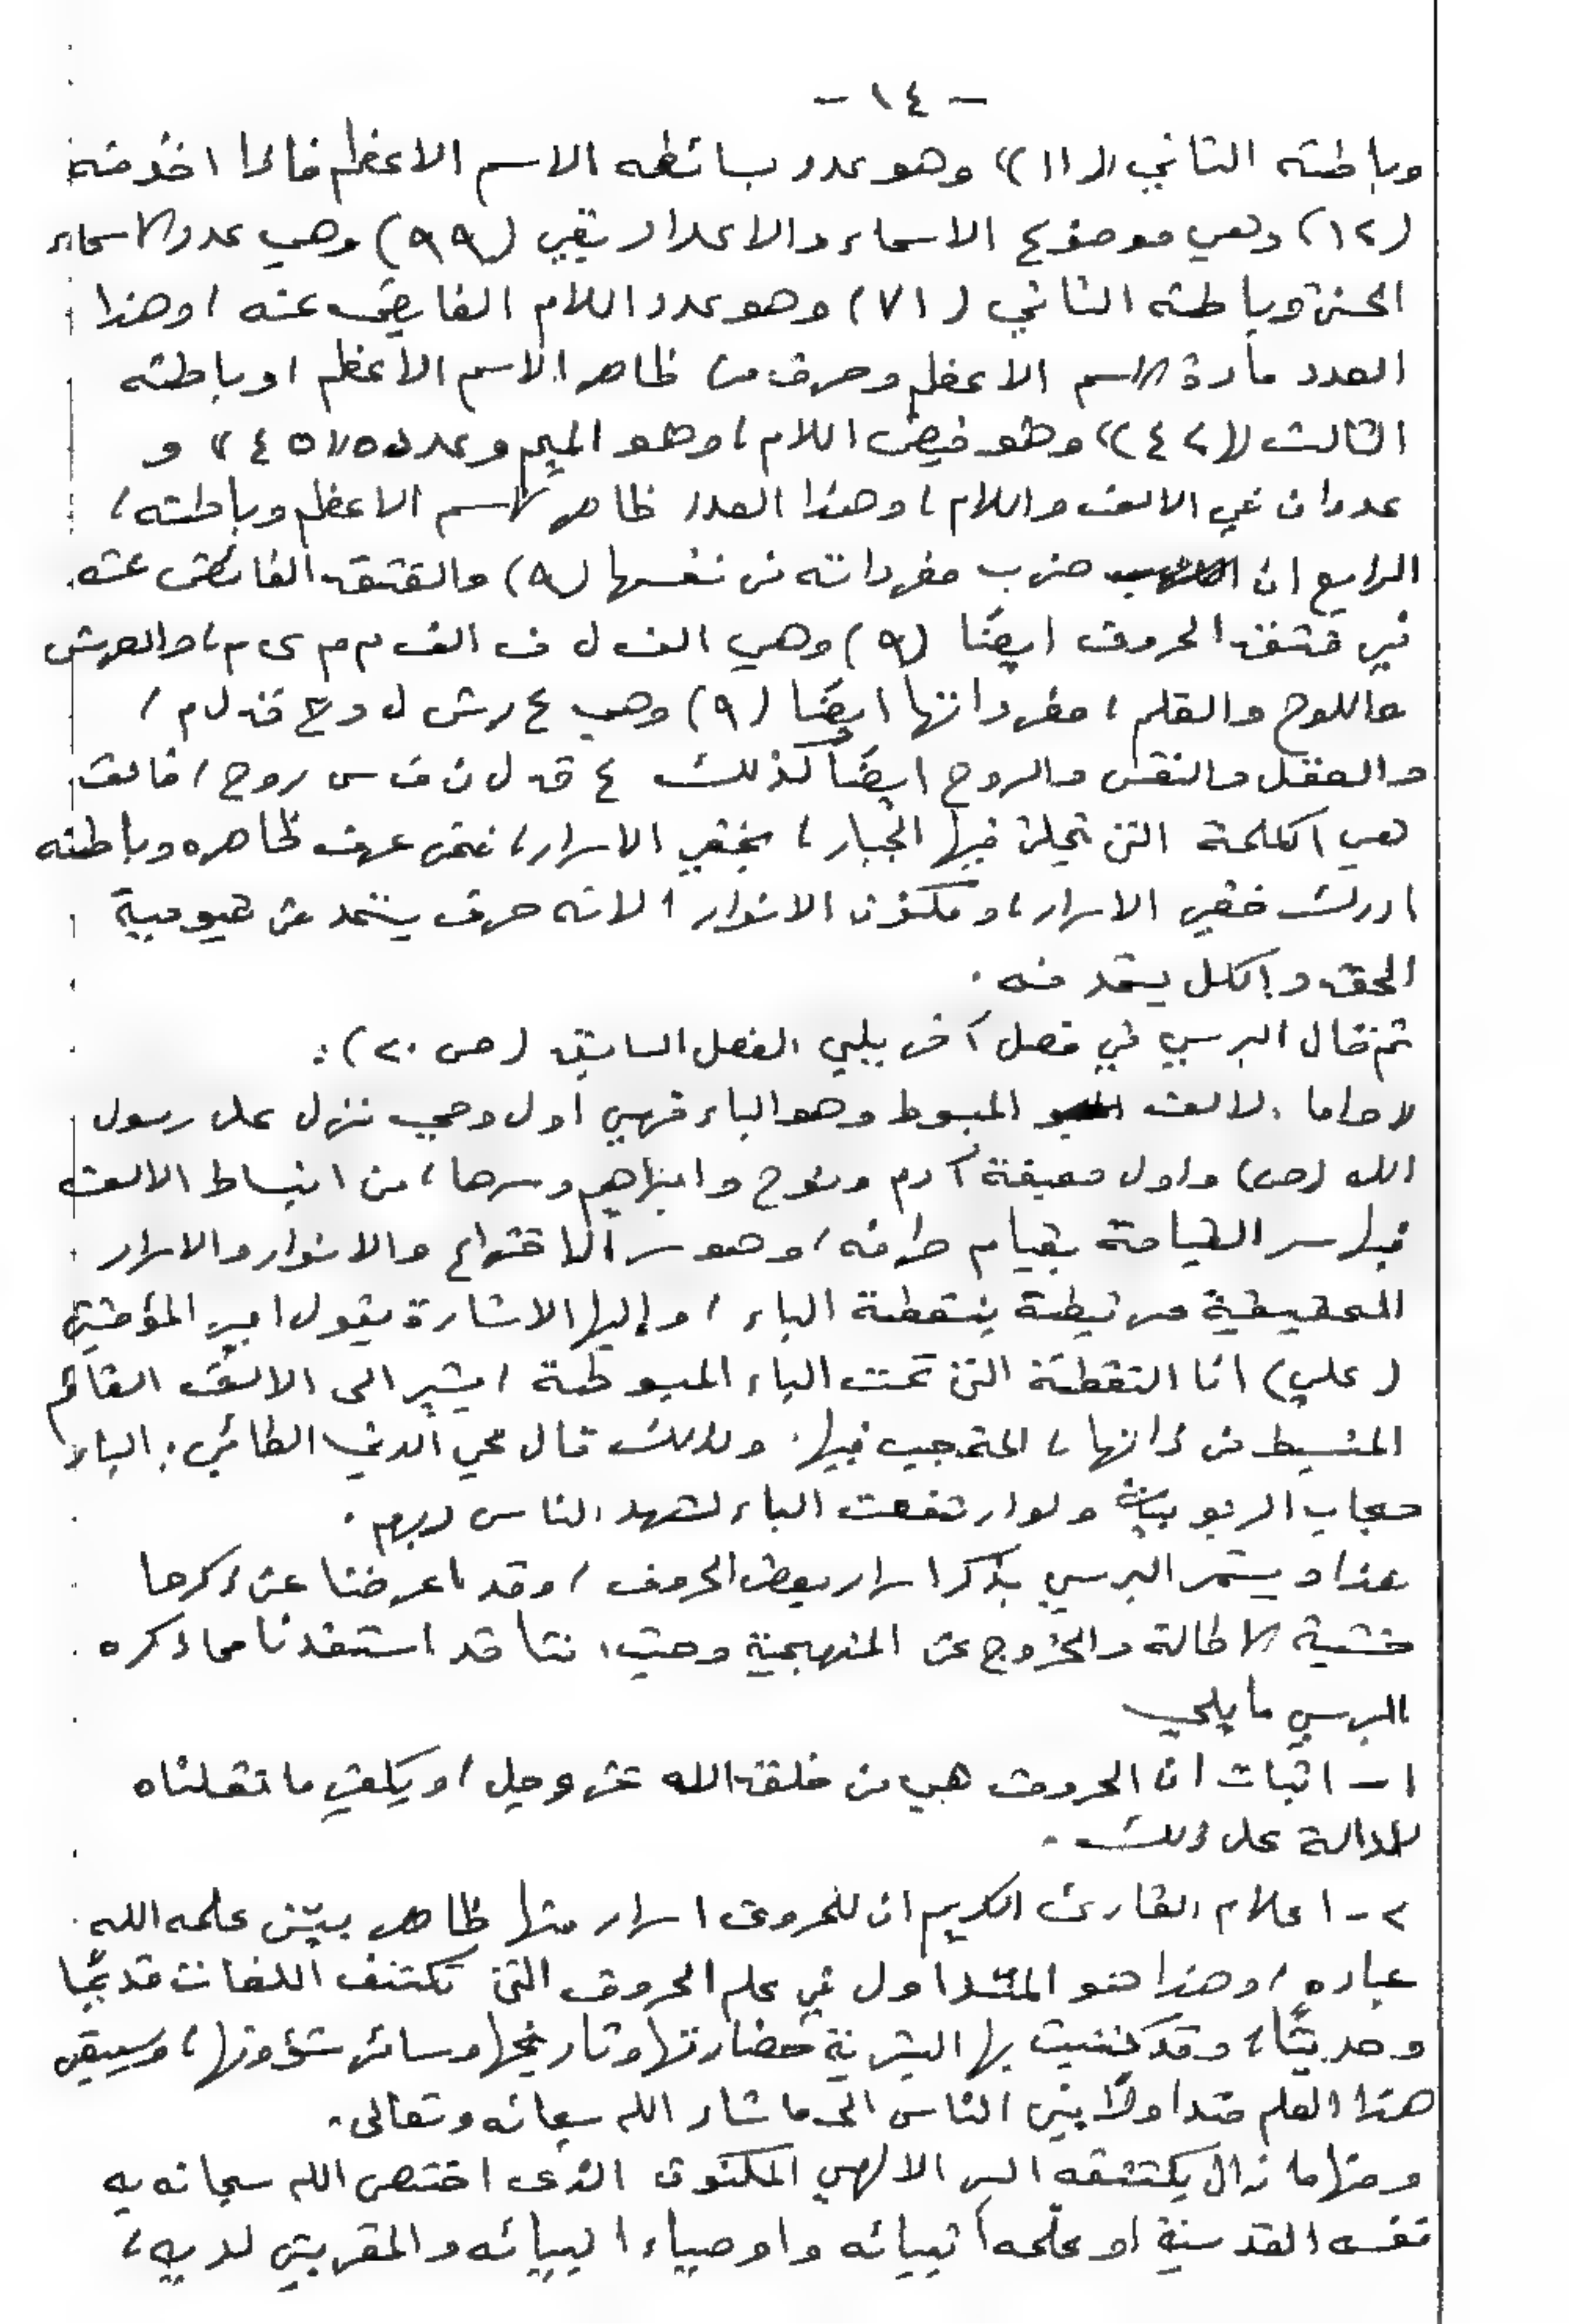 - ١٤ -
وباطنه الثاني «١١١» وهو عدد بسائطه الاسم الاعظم فاذا اخذ منه
(١٢) وهي موضوع الاسماء والاعداد بقي (٩٩) وهي عدد الاسماء
الحسنى وباطنه الثاني (٧١) وهو عدد اللام الفايض عنه، وهذا
العدد مادة الاسم الاعظم وحرف من ظاهر الاسم الاعظم، وباطنه
الثالث «٤٢» وهو فيض اللام، وهو الميم وعدده «٤٥» و
عددان في الالف واللام، وهذا العدد ظاهر الاسم الاعظم وباطنه،
الرابع ان ضرب مفرداته في نفسها (٩) والفتق الفائض عنه
في فتق الحروف ايضًا (٩) وهي الف ل ف الف م م ي م، والعرش
واللوح والقلم، مفرداتها ايضًا (٩) وهي ع رش ل وح ق ل م،
والعقل والنفس والروح ايضًا كذلك ع ق ل ن ف س روح، فالف
هي الكلمة التي تجلى فيها الجبار، بخفي الاسرار، فمن عرف ظاهره وباطنه
ادرك خفي الاسرار، ومكنون الانوار، لانه حرف يستمد من قيومية
الحق والكل يستمد منه.
ثم قال البرسي في فصل آخر يلي الفصل السابق (ص ٢٠):
واما الالف المبسوط وهو الباء فهي اول وحي نزل على رسول
الله (ص) واول صحيفة آدم ونوح وابراهيم وسرها، من انبساط الالف
فيها سر القيامة بقيام طرفه، وهو سر الاختراع والانوار والاسرار
الحقيقية مرتبطة بنقطة الباء، وإليها الاشارة بقول امير المؤمنين
(علي) انا النقطة التي تحت الباء المبسوطة، يشير الى الالف القائم
المنبسط في ذاتها، المحتجب فيها. ولذلك قال محي الدين الطائي: الباء
حجاب الربوبية ولو ارتفعت الباء لشهد الناس ربهم.
هذا ويستمر البرسي بذكر اسرار بعض الحروف، وقد اعرضنا عن ذكرها
خشية الاطالة والخروج عن المنهجية وحيث اننا قد استفدنا مما ذكره
البرسي ما يلي
١- اثبات ان الحروف هي من خلق الله عز وجل، ويكفي ما نقلناه
للدلالة على ذلك.
٢- اعلام القارئ الكريم ان للحروف اسرار منها ظاهر بيّن علمه الله
عباده، وهذا هو المتداول في علم الحروف التي تكتنف اللغات قديمًا
وحديثًا، وقد بنيت بها البشرية حضارتها وتاريخها وسائر شؤونها، وسيبقى
هذا العلم متداولًا بين الناس الى ما شاء الله سبحانه وتعالى.
ومنها ما زال يكتنفه السر الالهي المكنون الذي اختص الله سبحانه به
نفسه القدسية او علّمه انبيائه واوصياء انبيائه والمقربين لديه،